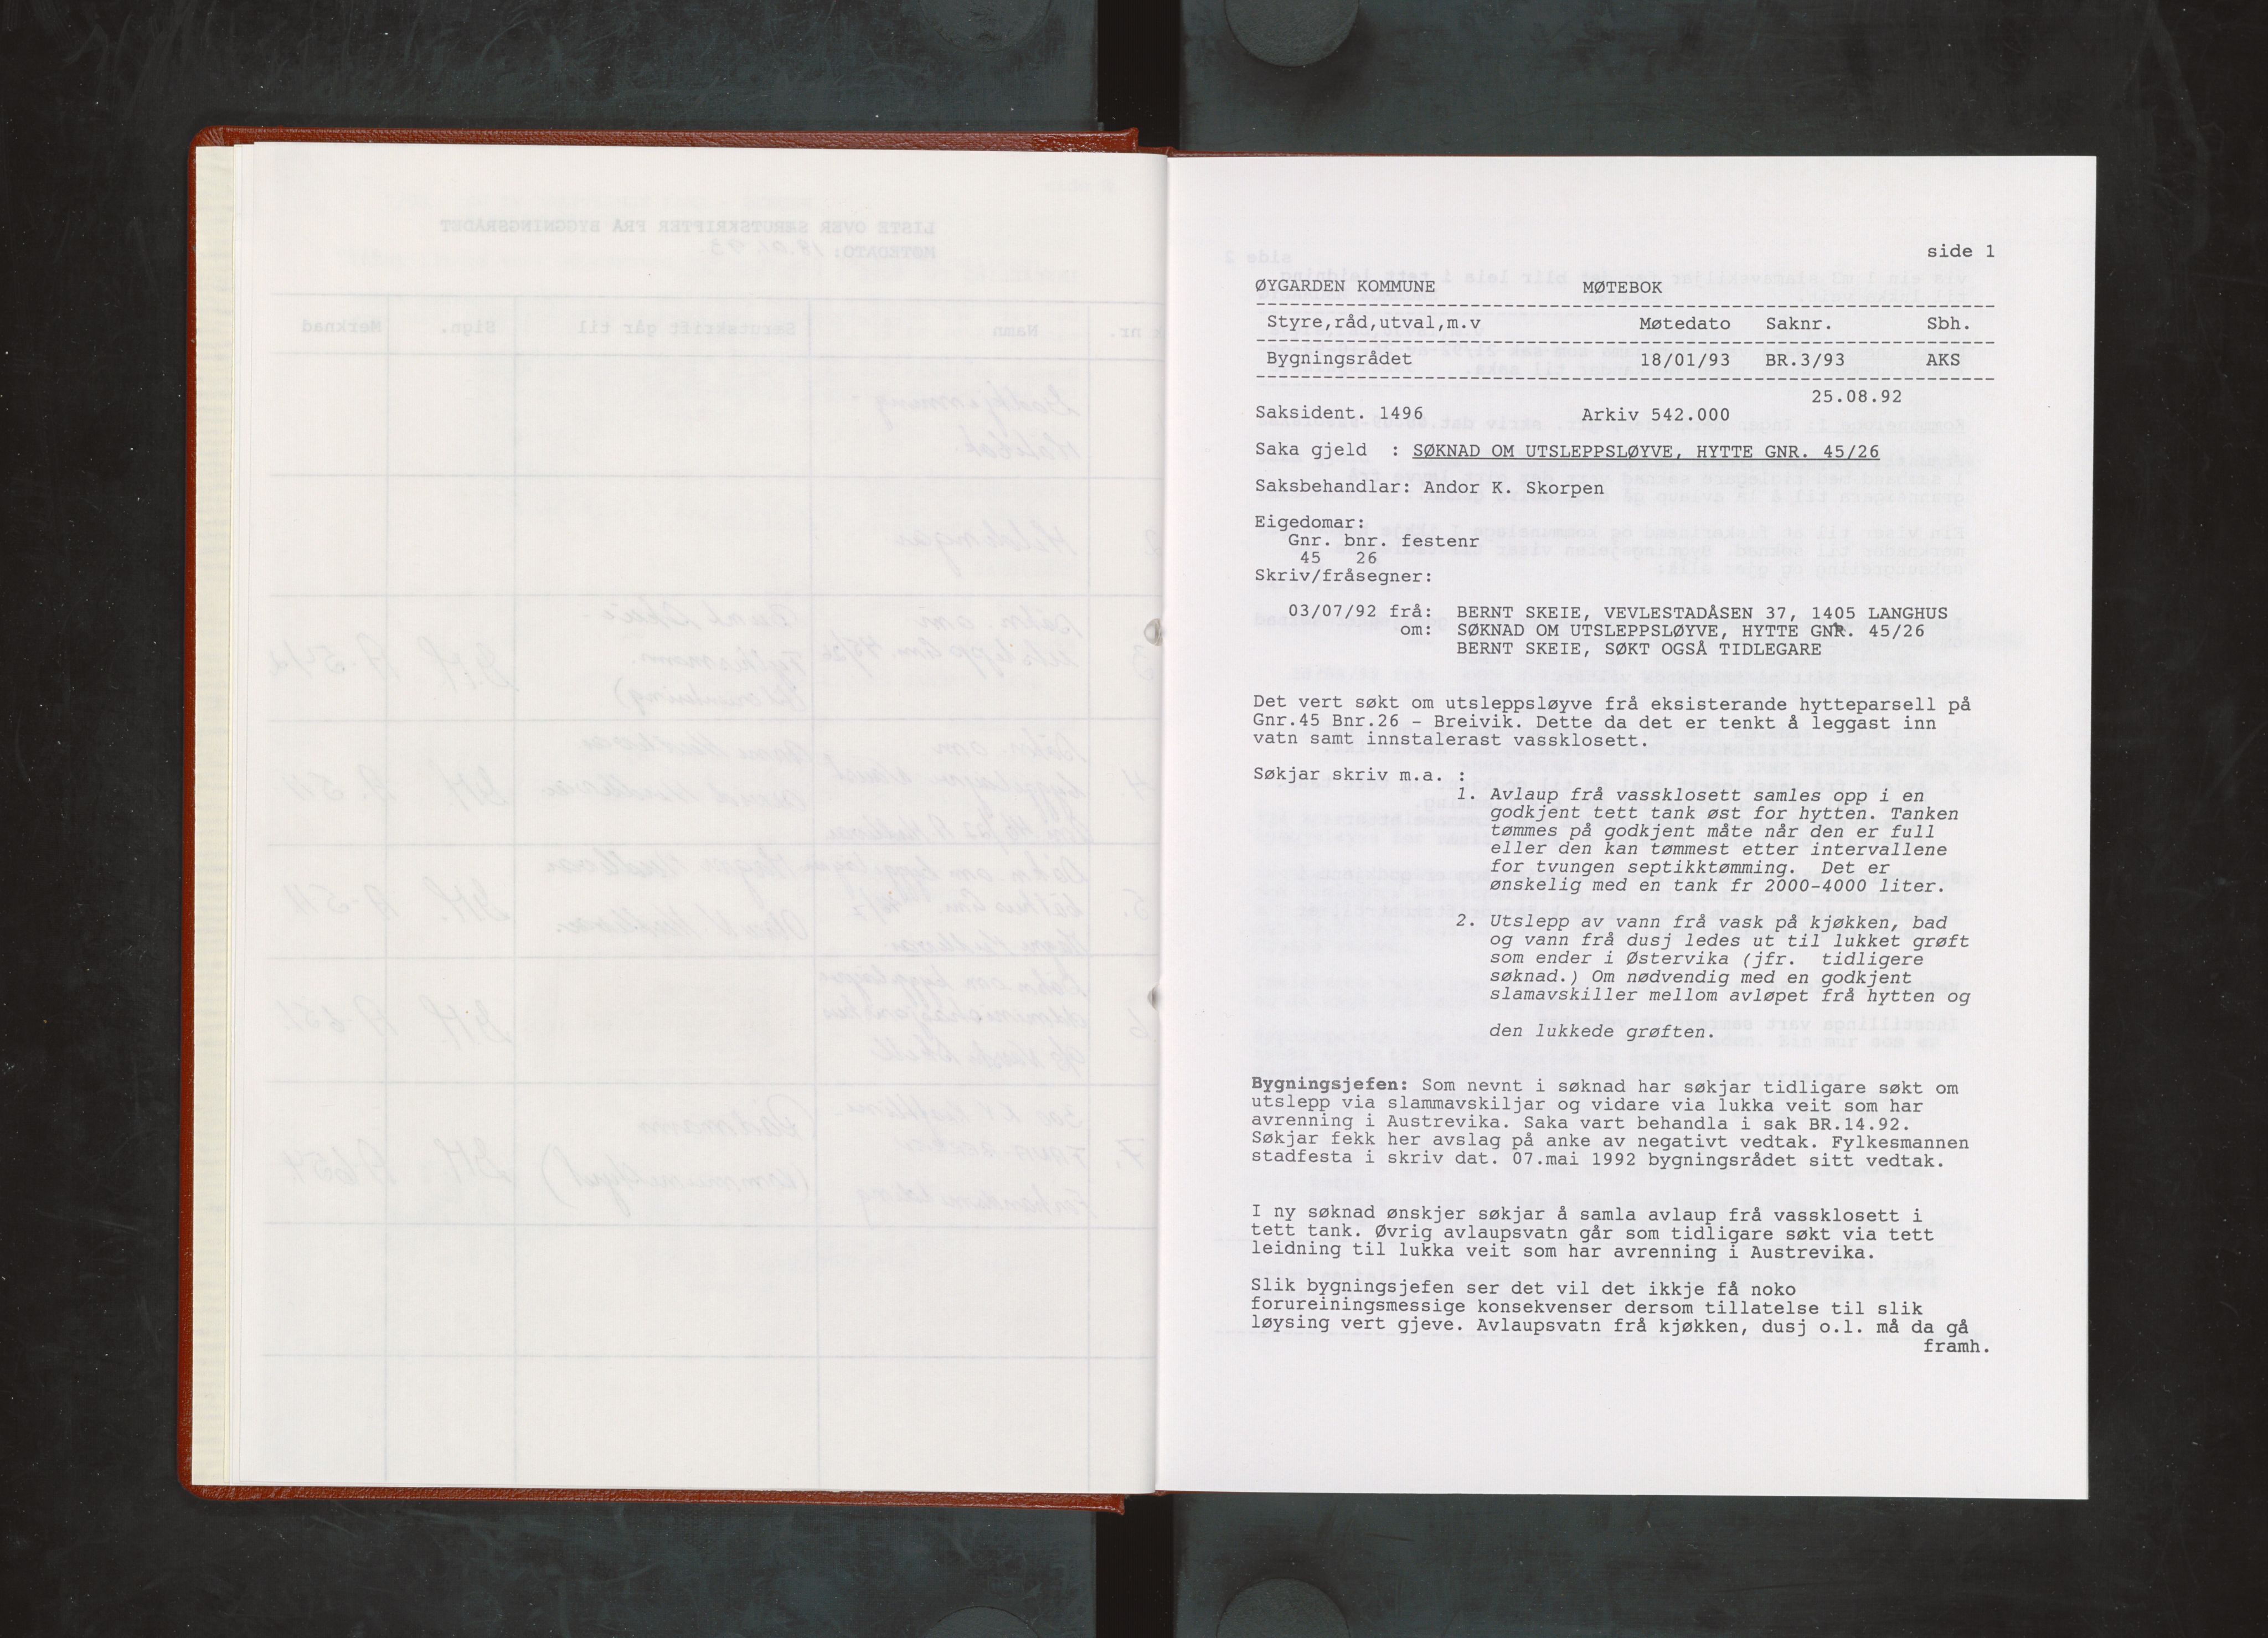 side 1
ØYGARDEN KOMMUNE MØTEBOK
Styre,råd,utval,m.v Møtedato Saknr. Sbh.
Bygningsrådet 18/01/93 BR.3/93 AKS
25.08.92
Saksident. 1496 Arkiv 542.000
Saka gjeld : SØKNAD OM UTSLEPPSLØYVE, HYTTE GNR. 45/26
Saksbehandlar: Andor K. Skorpen
Eigedomar:
Gnr. bnr. festenr
45 26
Skriv/fråsegner:
03/07/92 frå: BERNT SKEIE, VEVLESTADÅSEN 37, 1405 LANGHUS
om: SØKNAD OM UTSLEPPSLØYVE, HYTTE GNR. 45/26
BERNT SKEIE, SØKT OGSÅ TIDLEGARE
Det vert søkt om utsleppsløyve frå eksisterande hytteparsell på
Gnr.45 Bnr.26 - Breivik. Dette da det er tenkt å leggast inn
vatn samt innstalerast vassklosett.
Søkjar skriv m.a. :
1. Avlaup frå vassklosett samles opp i en
godkjent tett tank øst for hytten. Tanken
tømmes på godkjent måte når den er full
eller den kan tømmest etter intervallene
for tvungen septikktømming. Det er
ønskelig med en tank fr 2000-4000 liter.
2. Utslepp av vann frå vask på kjøkken, bad
og vann frå dusj ledes ut til lukket grøft
som ender i Østervika (jfr. tidligere
søknad.) Om nødvendig med en godkjent
slamavskiller mellom avløpet frå hytten og
den lukkede grøften.
Bygningsjefen: Som nevnt i søknad har søkjar tidligare søkt om
utslepp via slammavskiljar og vidare via lukka veit som har
avrenning i Austrevika. Saka vart behandla i sak BR.14.92.
Søkjar fekk her avslag på anke av negativt vedtak. Fylkesmannen
stadfesta i skriv dat. 07.mai 1992 bygningsrådet sitt vedtak.
I ny søknad ønskjer søkjar å samla avlaup frå vassklosett i
tett tank. Øvrig avlaupsvatn går som tidligare søkt via tett
leidning til lukka veit som har avrenning i Austrevika.
Slik bygningsjefen ser det vil det ikkje få noko
forureiningsmessige konsekvenser dersom tillatelse til slik
løysing vert gjeve. Avlaupsvatn frå kjøkken, dusj o.l. må da gå
framh.